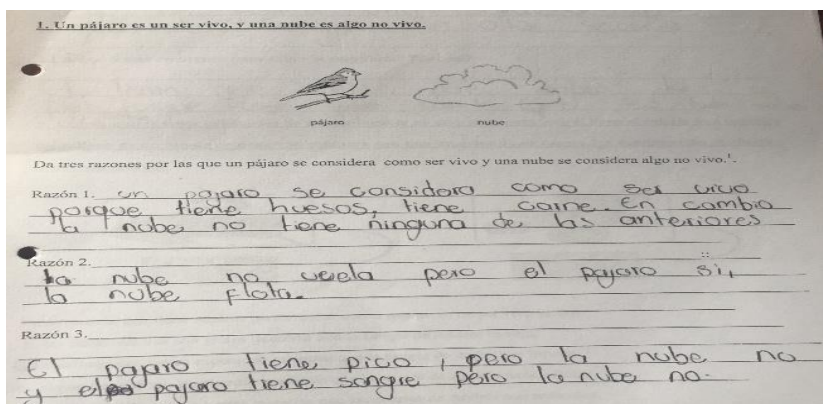 1. Un pájaro es un ser vivo, y una nube es algo no vivo.
pájaro
nube
Da tres razones por las que un pájaro se considera como ser vivo y una nube se considera algo no vivo.
Razón 1. un pajaro se considera como ser vivo
porque tiene huesos, tiene carne. En cambio
la nube no tiene ninguna de las anteriores
Razón 2.
la nube no vuela pero el pajaro si,
la nube flota.
Razón 3.
El pajaro tiene pico, pero la nube no
y el pajaro tiene sangre pero la nube no.